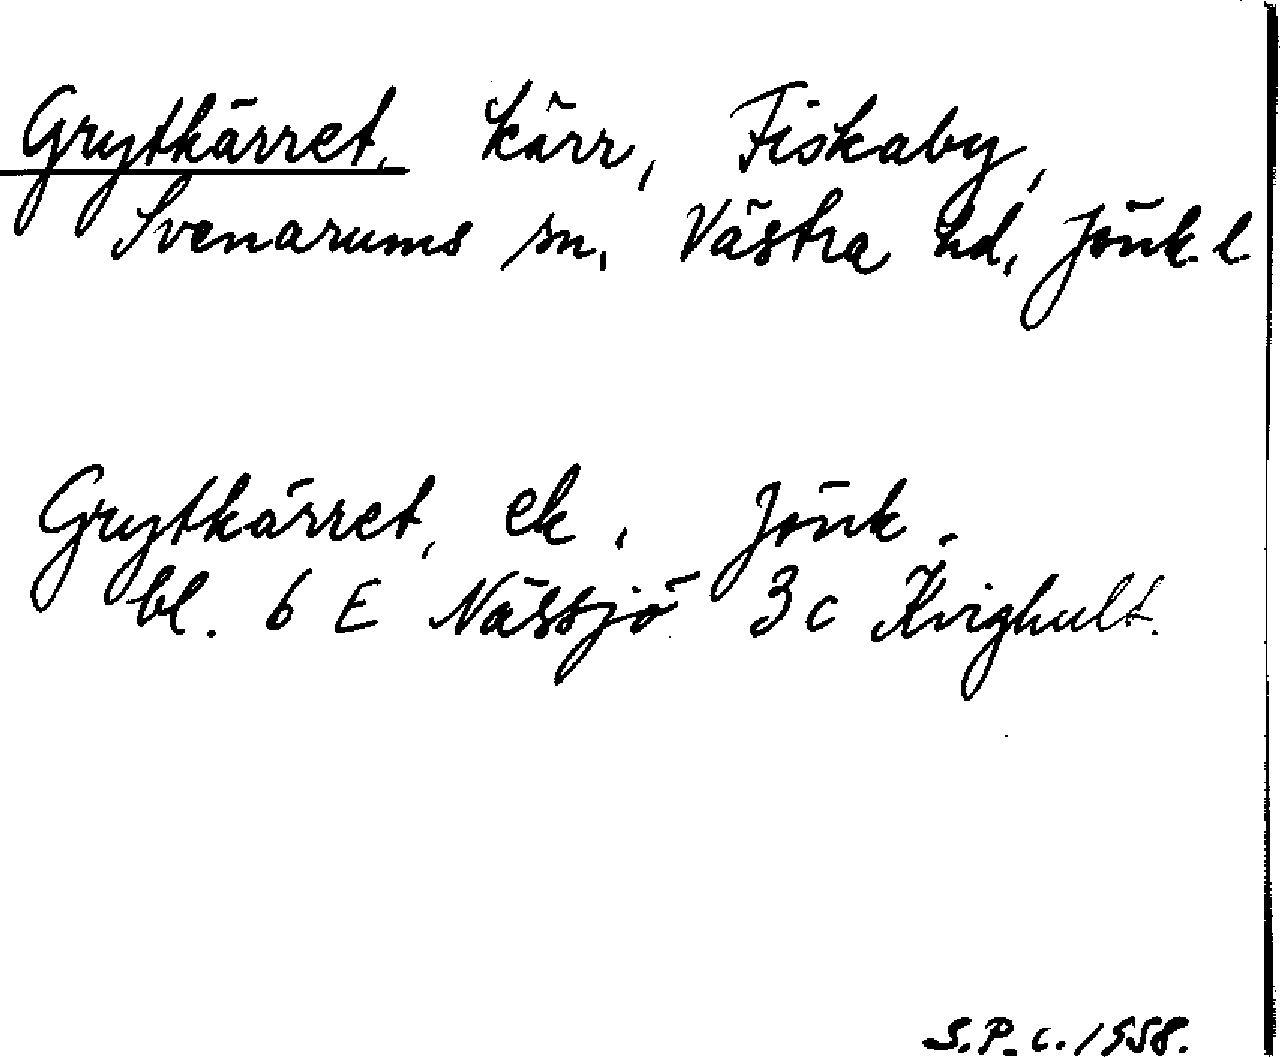 Grytkärret, kärr, Fiskaby,
Svenarums sn, Västra hd, Jönk. l.
Grytkärret, ek, Jönk.
bl. 6 E Nässjö 3c Kvighult.
S.P. c. 1958.